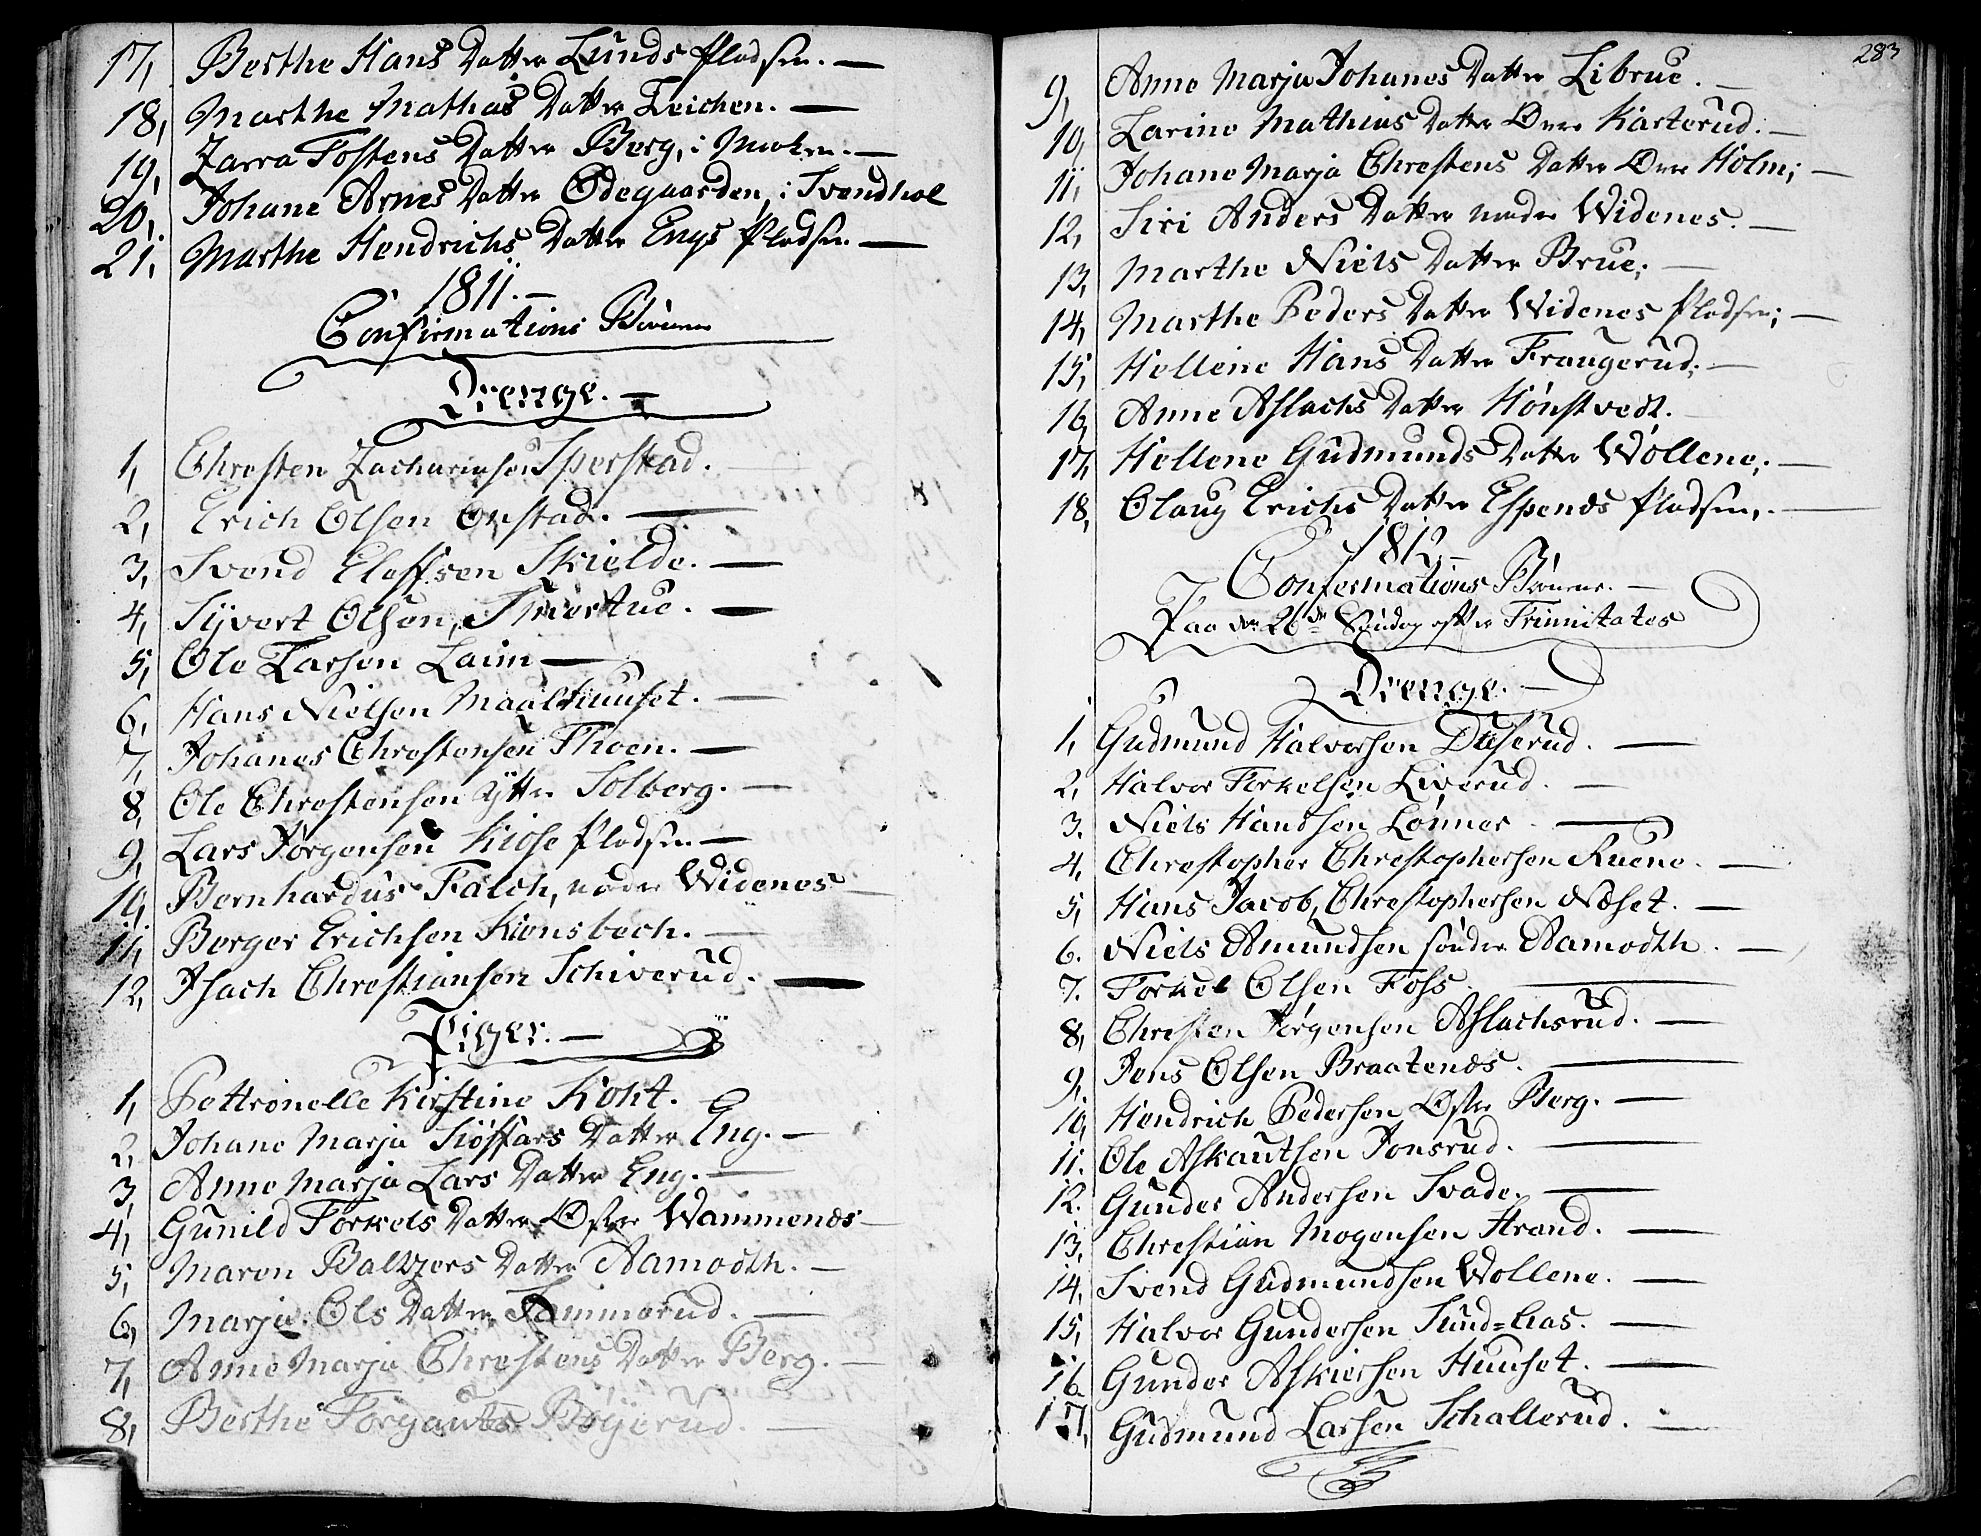 17, Berthe Hans Datter Lunds Pladsen. —
18, Marthe Mathias Datter Teichen. —
19, Zarra Tostens Datter Berg, i Moken. —
20, Johane Arnes Datter Ødegaarden, i Svendhol
21, Marthe Hendrichs Datter Engs Pladsen —
1811. —
Confirmations Børnene
Drenge. —
1, Chresten Zachariasen Sperstad.
2, Erich Olsen Onstad. —
3, Svend Eleffsen Skielde. —
4, Sÿvert Olsen, Smertue. —
5, Ole Larsen Laim —
6, Hans Nielsen Maalhuuset. —
7, Johanes Chrestensen Thoen. —
8, Ole Chrestensen Ÿtter Solberg. —
9, Lars Jørgensen Kiose Pladsen —
10, Bernhardus Falch, neder Widenes —
11, Berger Erichsen Kiensbech. —
12, Isach Christiansen Schiverud. —
Piger. —
1, Pettronelle Kirstine Koht.
2, Johane Marja Siøffars Datter Eng. —
3, Anne Marja Lars Datter Eng. —
4, Gunild Torkels Datter Øster Wammenæs —
5, Maren Baltzers Datter Aamodth. —
6, Marja Ols Datter Tammerud. —
7, Anne Marja Chrestens Datter Berg. —
8, Berthe Torgauts Bøÿerud. —
283
9, Anne Marja Johanes Datter Librue. —
10, Larine Mathias Datter Øvre Karterud. —
11, Johane Marja Chrestens Datter Øvre Holm; —
12, Siri Anders Datter neder Widenes. —
13, Marthe Niels Datter Brue; —
14, Marthe Peders Datter Widenes Pladsen; —
15, Hellene Hans Datter Fraugerud. —
16, Anne Aslachs Datter Hønstvedt. —
17, Hellene Gudmunds Datter Wøllene; —
18, Olaug Erichs Datter Espenæs Pladsen, —
1812 —
Confermations Børnene. —
Paa den 26de Søndag efter Trinnitates
Drenge. —
1, Gudmund Halvorsen Duserud. —
2, Halvor Torkelsen Liverud. —
3. Niels Handsen Lønner —
4, Chrestopher Chrestophersen Ruene. —
5, Hans Jacob, Chrestophersen Næset. —
6. Niels Amundsen sønder Aamodth. —
7. Torkel Olsen Foss —
8, Chresten Jørgensen Aslachsrud. —
9, Jens Olsen Braatenæs. —
10, Hendrich Pedersen Øster Berg. —
11. Ole Askautsen Jonsrud. —
12. Gunder Andersen Svade. —
13, Chrestian Mogensen Strand. —
14, Svend Gudmundsen Wollene. —
15, Halvor Gundersen Sund=Aas. —
16 Gunder Askiersen Huuset. —
17, Gudmund Larsen Schallerud. —